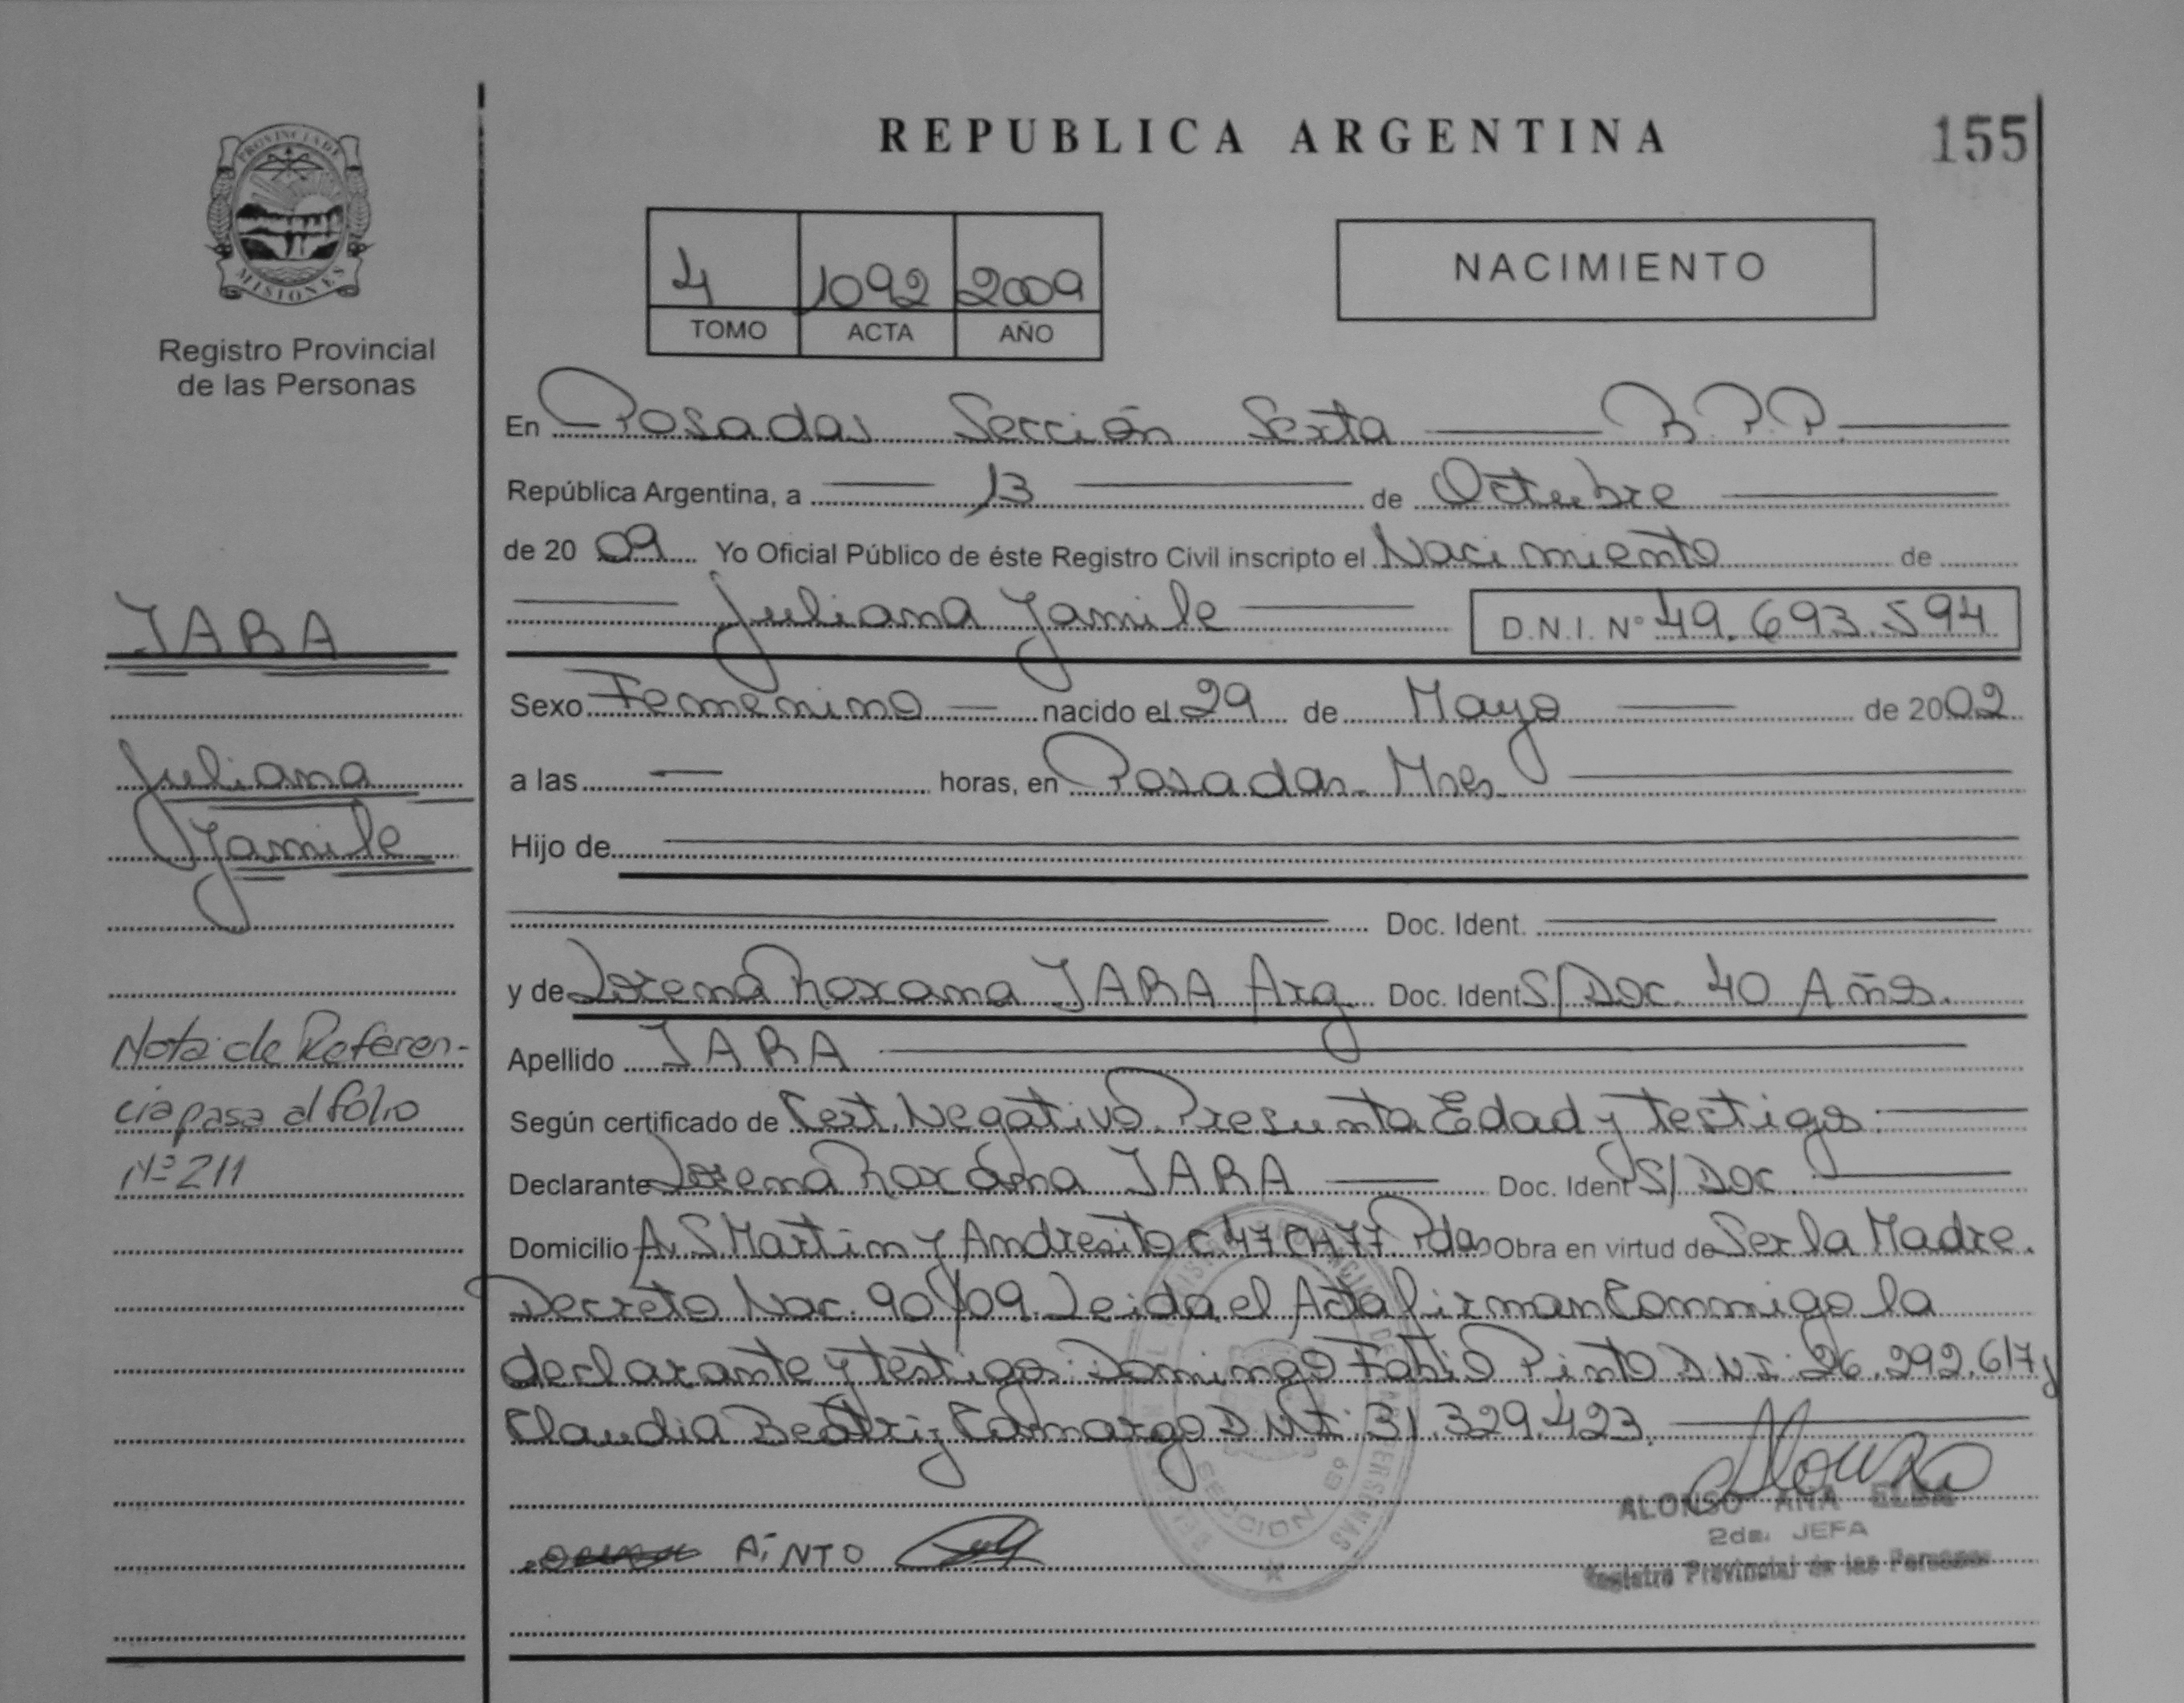 REPUBLICA ARGENTINA
155
PROVINCIA DE
MISIONES
Registro Provincial
de las Personas
4 1092 2009
TOMO ACTA AÑO
NACIMIENTO
En Posadas Sección Sexta R.P.P.
República Argentina, a 13 de Octubre
de 20 09 Yo Oficial Público de éste Registro Civil inscripto el Nacimiento de
Juliana Yamile D.N.I. Nº 49.693.594
JARA
Juliana
Yamile
Nota de Referen-
cia pasa al folio
Nº 211
Sexo Femenino nacido el 29 de Mayo de 2002
a las horas, en Posadas Mnes
Hijo de
Doc. Ident.
y de Lorena Roxana JARA Arg. Doc. Ident S/Doc. 40 Años.
Apellido JARA
Según certificado de Cert. Negativo Presunta Edad y testigos.
Declarante Lorena Roxana JARA Doc. Ident S/Doc.
Domicilio Av. S Martin y Andresito Pdas Obra en virtud de Ser la Madre.
Decreto Nac. 90/09. Leida el Acta firman Conmigo la
declarante y testigos: Domingo Fabio Pinto D.N.I: 26.292.617 y
Claudia Beatriz Camargo D.N.I: 31.329.423.
PiNTO
SECCION 6ª
ALONSO ANA ELBA
2da. JEFA
Registro Provincial de las Personas